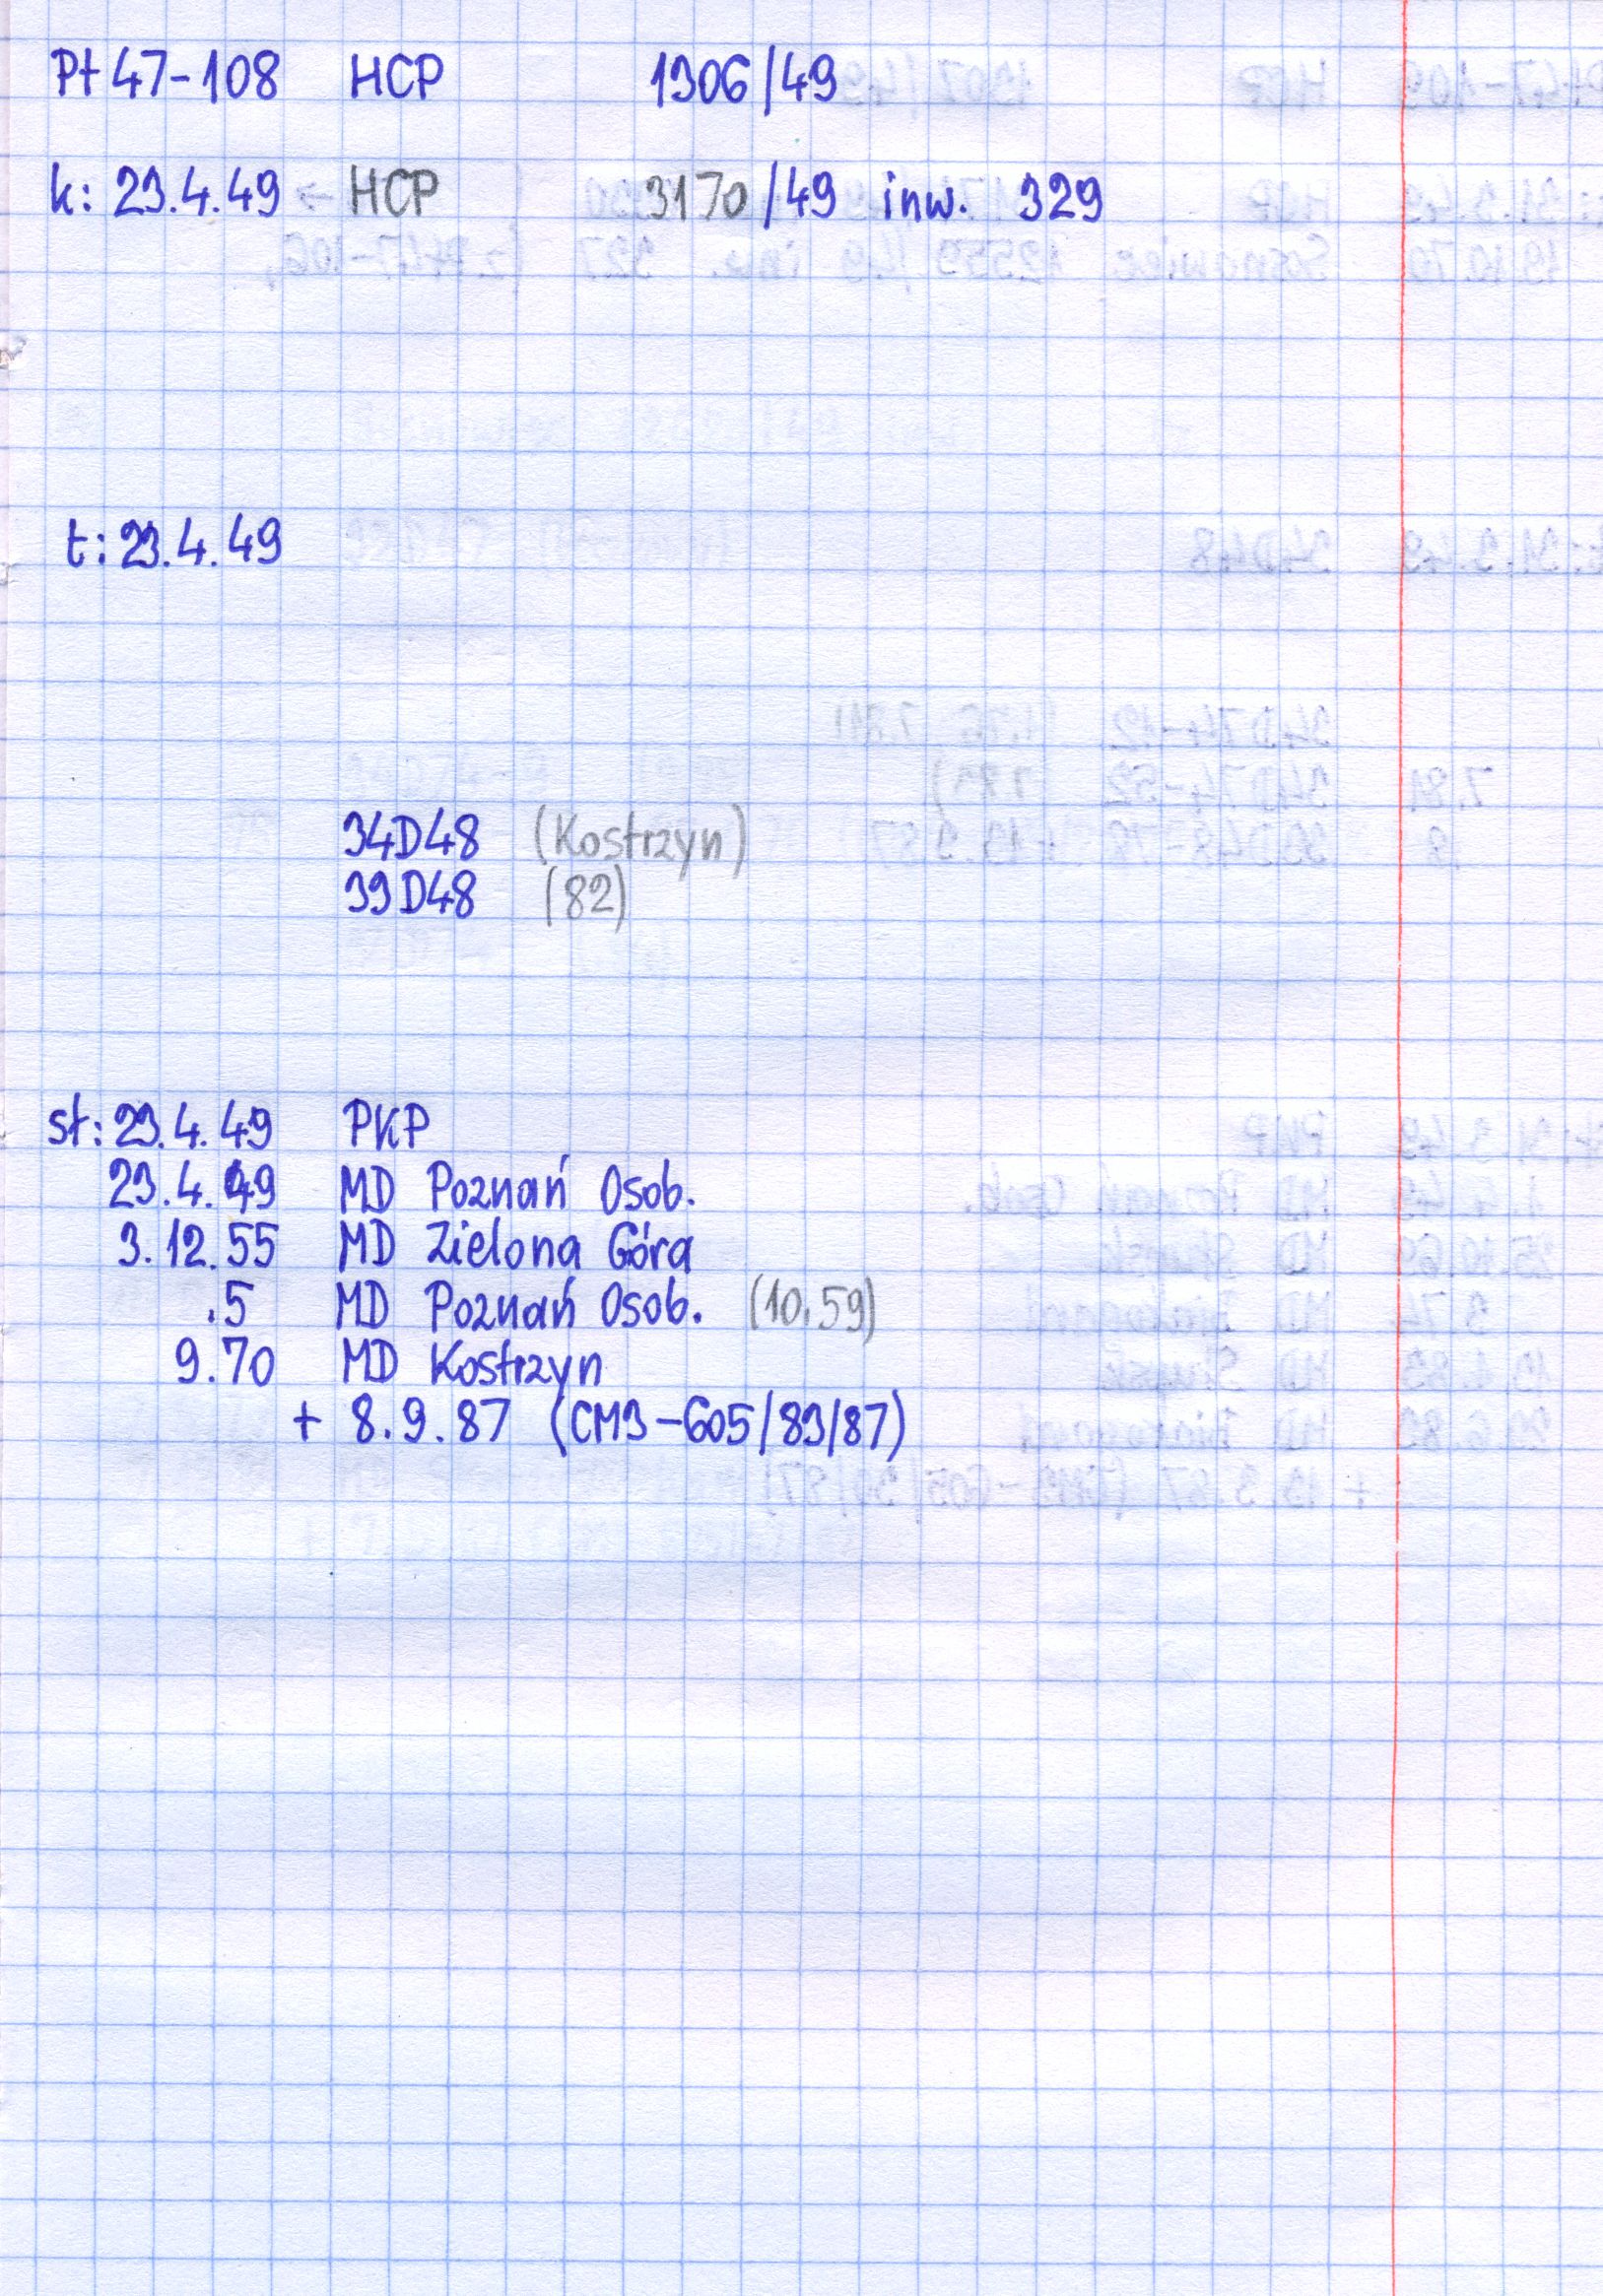 Pt 47-108 HCP 1306/49
k: 23.4.49 → HCP 3170/49 inw. 329
t: 23.4.49
34D48 (Kostrzyn)
39D48 (82)
st: 23.4.49 PKP
23.4.49 MD Poznań Osob.
3.12.55 MD Zielona Góra
.5 MD Poznań Osob. (10.59)
9.70 MD Kostrzyn
+ 8.9.87 (CM3-605/83/87)